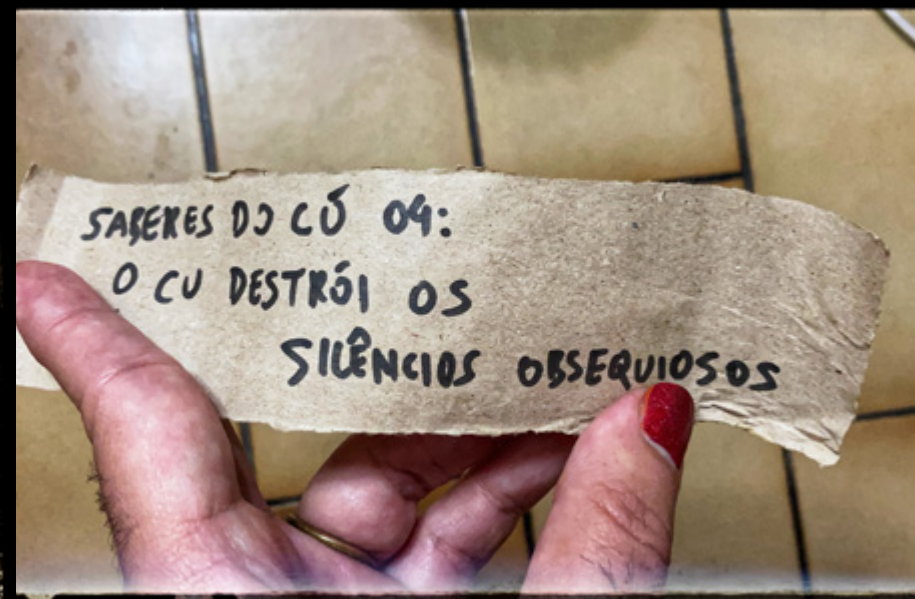 SABERES DO CÚ 09:
O CU DESTRÓI OS
SILÊNCIOS OBSEQUIOSOS